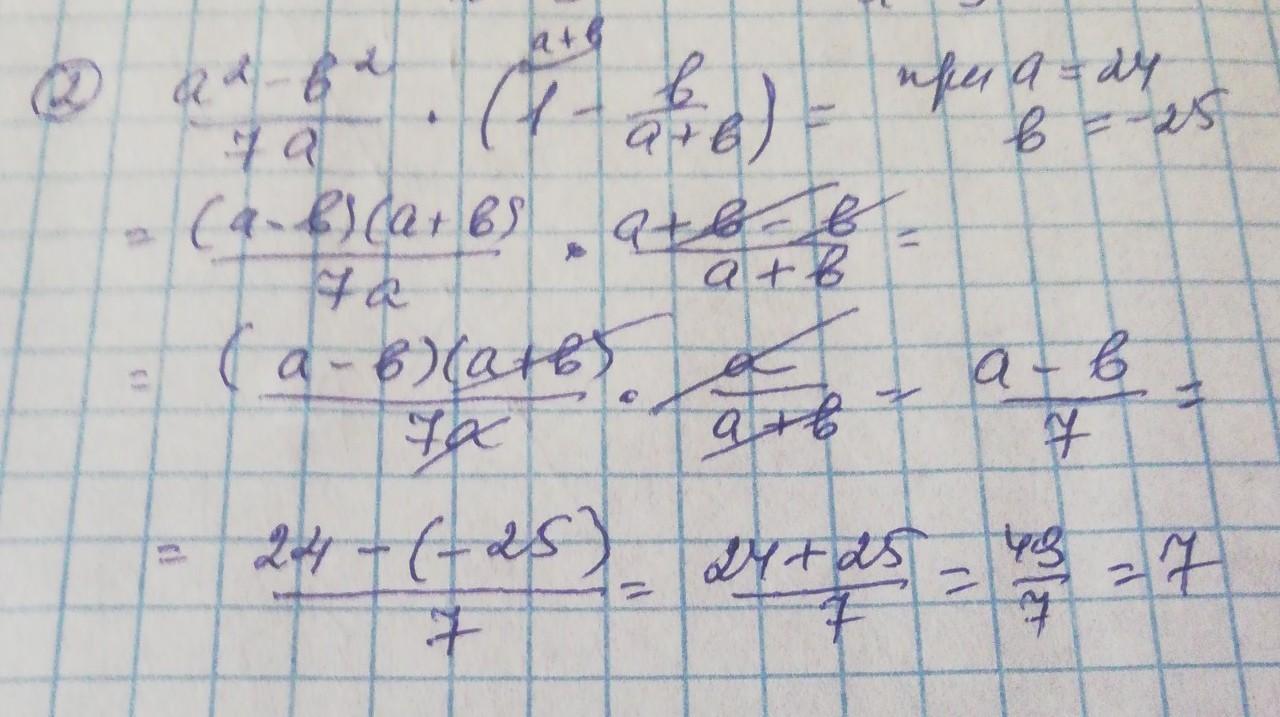 a+b
② a² - b² / 7a · (1 - b / a+b) = при a = 24
b = -25
= (a-b)(a+b) / 7a · a+b-b / a+b =
= (a-b)(a+b) / 7a · a / a+b = a - b / 7 =
= 24 - (-25) / 7 = 24 + 25 / 7 = 49 / 7 = 7